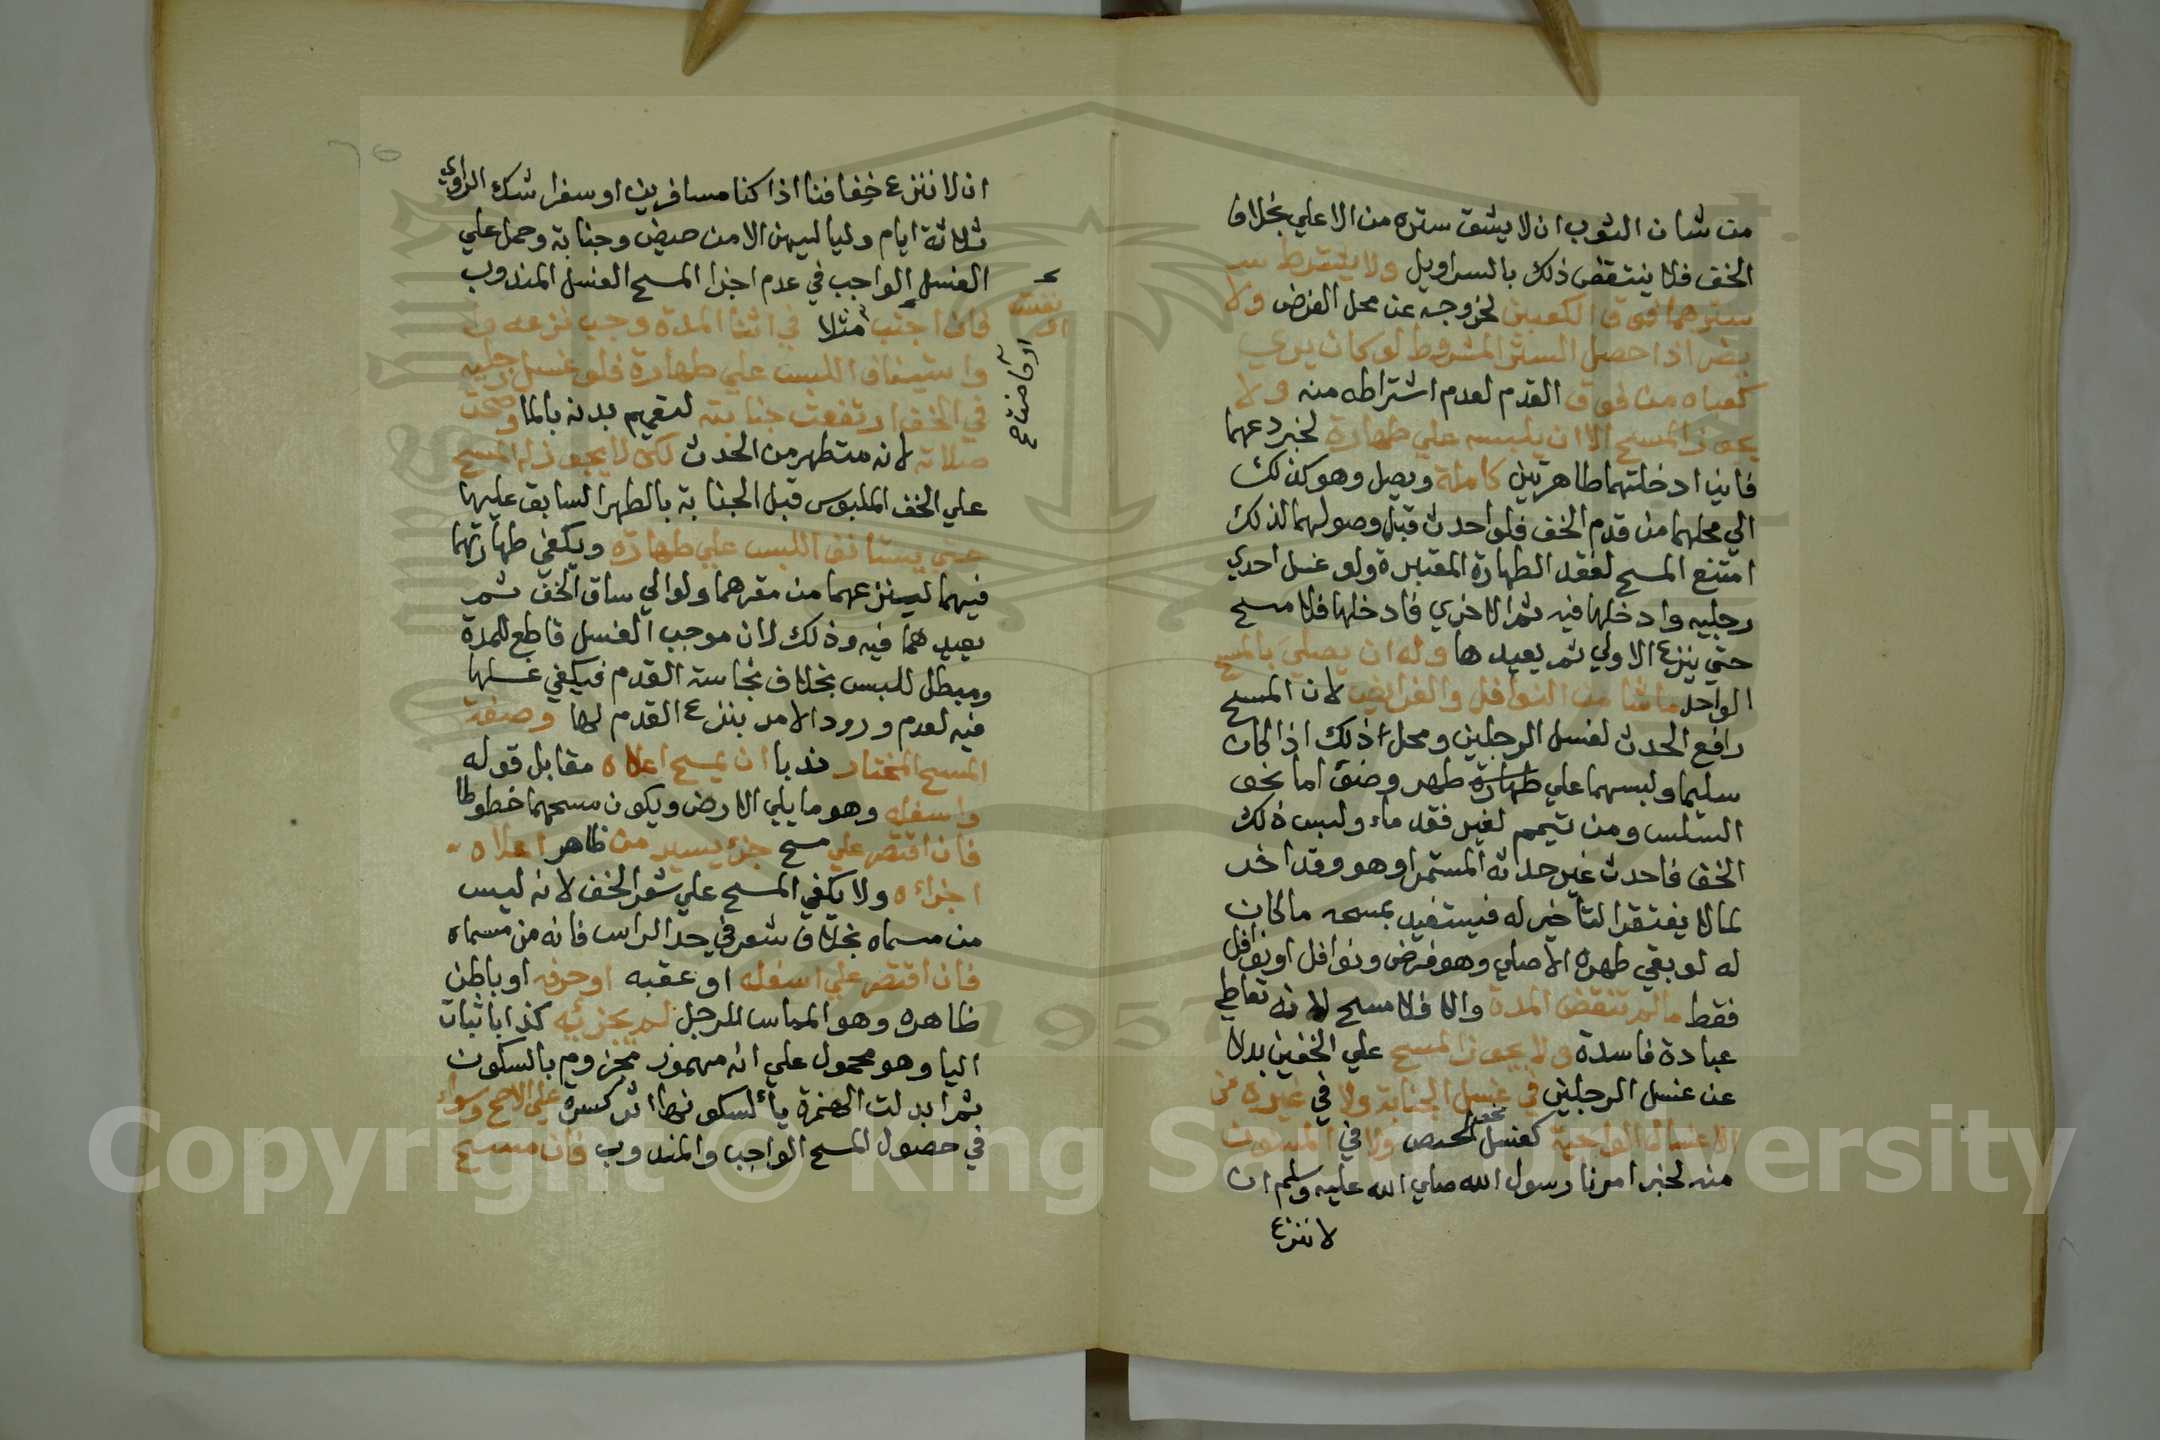 من شان الثوب ان لا يشق ستره من الاعلي بخلاف
الخف فلا ينتقض ذلك بالسراويل ولا يشترط
سترهما فوق الكعبين لخروجه عن محل الفرض ولا
يضر اذا حصل الستر المشروط لو كان يري
كعباه من فوق القدم لعدم اشتراطه منه ولا
يجوز المسح الا ان يلبسه علي طهارة لخبر دعهما
فاني ادخلتهما طاهرتين كاملة ويصل وهو كذلك
الي محلهما من قدم الخف فلو احدث قبل وصولهما لذلك
امتنع المسح لفقد الطهارة المعتبرة ولو غسل احدي
رجليه وادخلها فيه ثم الاخري فادخلها فلا مسح
حتي ينزع الاولي ثم يعيدها وله ان يصلي بالمسح
الواحد ما شا من النوافل والفرايض لان المسح
رافع الحدث لغسل الرجلين ومحل ذلك اذا كان
سليما ولبسهما علي طهارة طهر وضو اما نحو
السلس ومن تيمم لغير فقد ماء ولبس ذلك
الخف فاحدث غير حدثه المستمر او هو وقد اخد
لما لا يفتقر التأخير له فيستفيد بمسحه ما كان
له لو بقي طهره الاصلي وهو فرض ونوافل او نوافل
فقط ما لم تنقض المدة والا فلا مسح لانه تعاطي
عبادة فاسدة ولا يجوز المسح علي الخفين بدلا
عن غسل الرجلين في غسل الجنابة ولا في غيره من
الاغسال الواجبة كغسل نحو الحيض ولا في المسنون
منه لخبر امرنا رسول الله صلي الله عليه وسلم ان
لا ننزع
ان لا ننزع خفافنا اذا كنا مسافرين او سفرا شك الراوي
ثلاثة ايام ولياليهن الا من حيض وجنابة وحمل علي
الغسل الواجب في عدم اجزا المسح الغسل المندوب
فان اجنب مثلا في اثنا المدة وجب نزعه
واستيناف اللبس علي طهارة فلو غسل رجليه
في الخف ارتفعت جنابته لتعميم بدنه بالما وصحت
صلاته لانه متطهر من الحدث لكن لا يجوز له المسح
علي الخف الملبوس قبل الجنابة بالطهر السابق عليها
حتي يستانف اللبس علي طهارة ويكفي طهارتهما
فيهما لينزعهما من مقرهما ولو الي ساق الخف ثم
يعيدهما فيه وذلك لان موجب الغسل قاطع للمدة
ومبطل للبس بخلاف نجاسة القدم فيكفي غسلها
فيه لعدم ورود الامر بنزع القدم لها وصفة
المسح المختار ندبا ان يمسح اعلاه مقابل قوله
واسفله وهو ما يلي الارض ويكون مسحهما خطوطا
فان اقتصر علي مسح جزء يسير من ظاهر اعلاه
اجزاءه ولا يكفي المسح علي شعر الخف لانه ليس
من مسماه بخلاف شعر في حد الراس فانه من مسماه
فان اقتصر علي اسفله او عقبه او حرفه او باطن
ظاهره وهو المماس للرجل لم يجزئيه كذا باثبات
اليا وهو محمول علي انه مهموز مجزوم بالسكون
ثم ابدلت الهمزة يأ لسكونها اثر كسرة علي الاصح وسواء
في حصول المسح الواجب والمندوب فان مسح
Copyright © King Saud University
1957